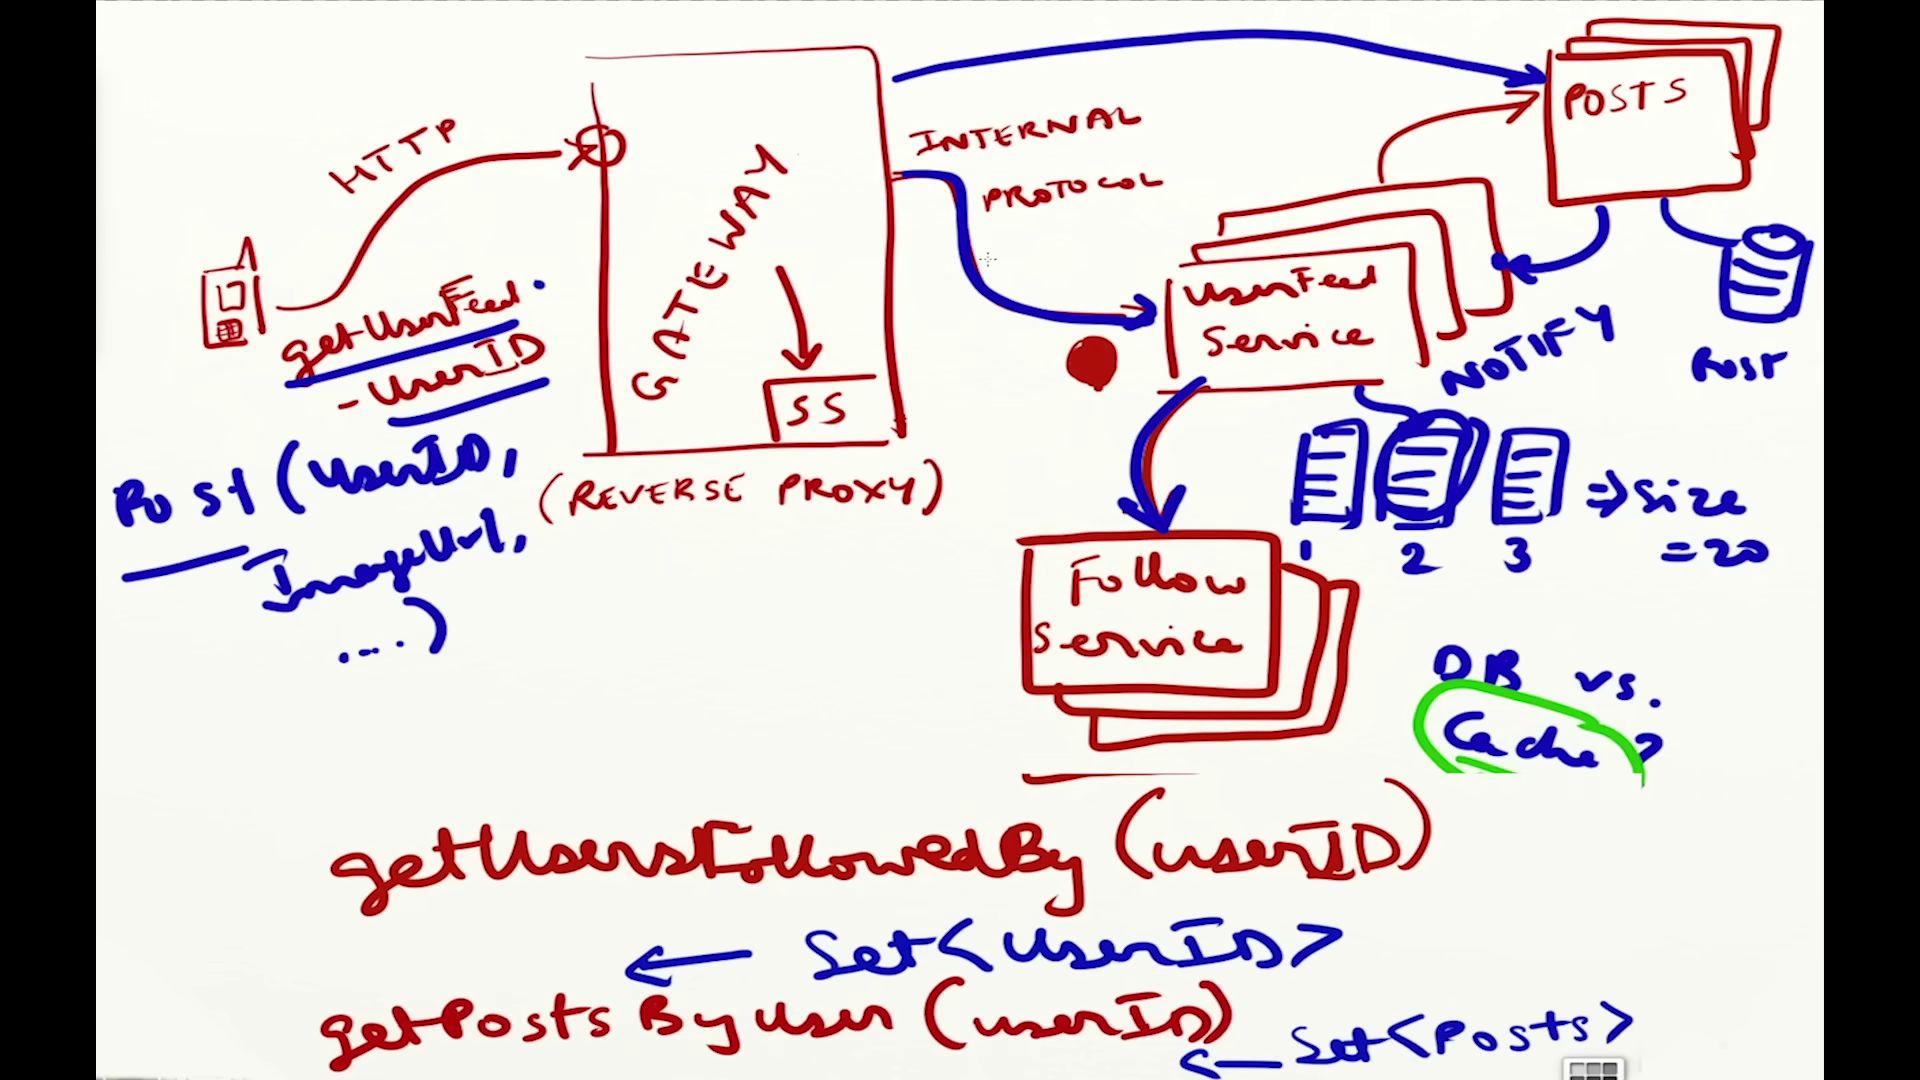 HTTP
getUserFeed.
- UserID
Post (userID,
ImageUrl,
....)
GATEWAY
SS
(REVERSE PROXY)
INTERNAL
PROTOCOL
POSTS
UserFeed
Service
NOTIFY
Post
1 2 3
=> size
= 20
Follow
Service
DB vs.
Cache ?
getUsersFollowedBy (userID)
← Set<UserID>
getPostsByUser (userID)
← Set<Posts>